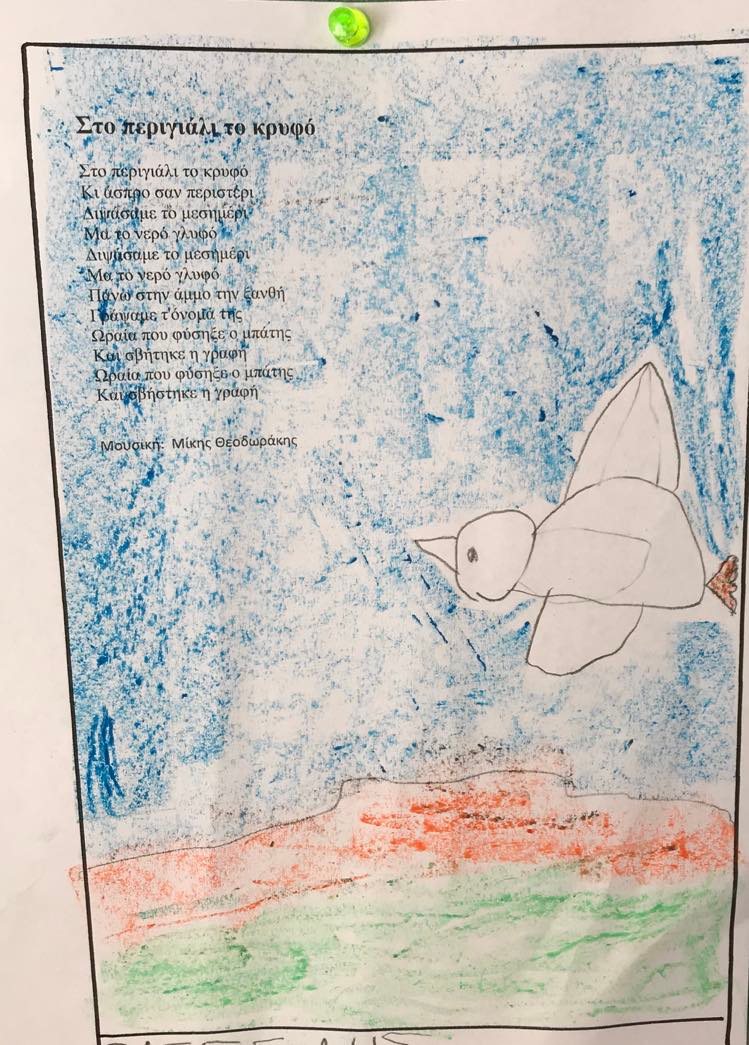 Στο περιγιάλι το κρυφό
Στο περιγιάλι το κρυφό
Κι άσπρο σαν περιστέρι
Διψάσαμε το μεσημέρι
Μα το νερό γλυφό
Διψάσαμε το μεσημέρι
Μα το νερό γλυφό
Πάνω στην άμμο την ξανθή
Γράψαμε τ'όνομά της
Ωραία που φύσηξε ο μπάτης
Και σβήτηκε η γραφή
Ωραία που φύσηξε ο μπάτης
Και σβήστηκε η γραφή
Μουσική: Μίκης Θεοδωράκης